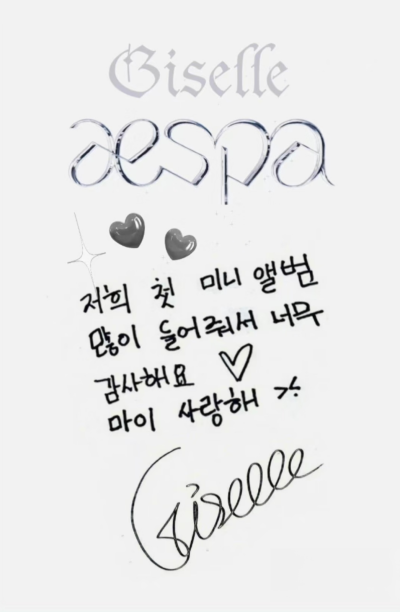 Giselle
aespa
저희 첫 미니 앨범
많이 들어줘서 너무
감사해요 ♡
마이 사랑해 :>:
Giselle